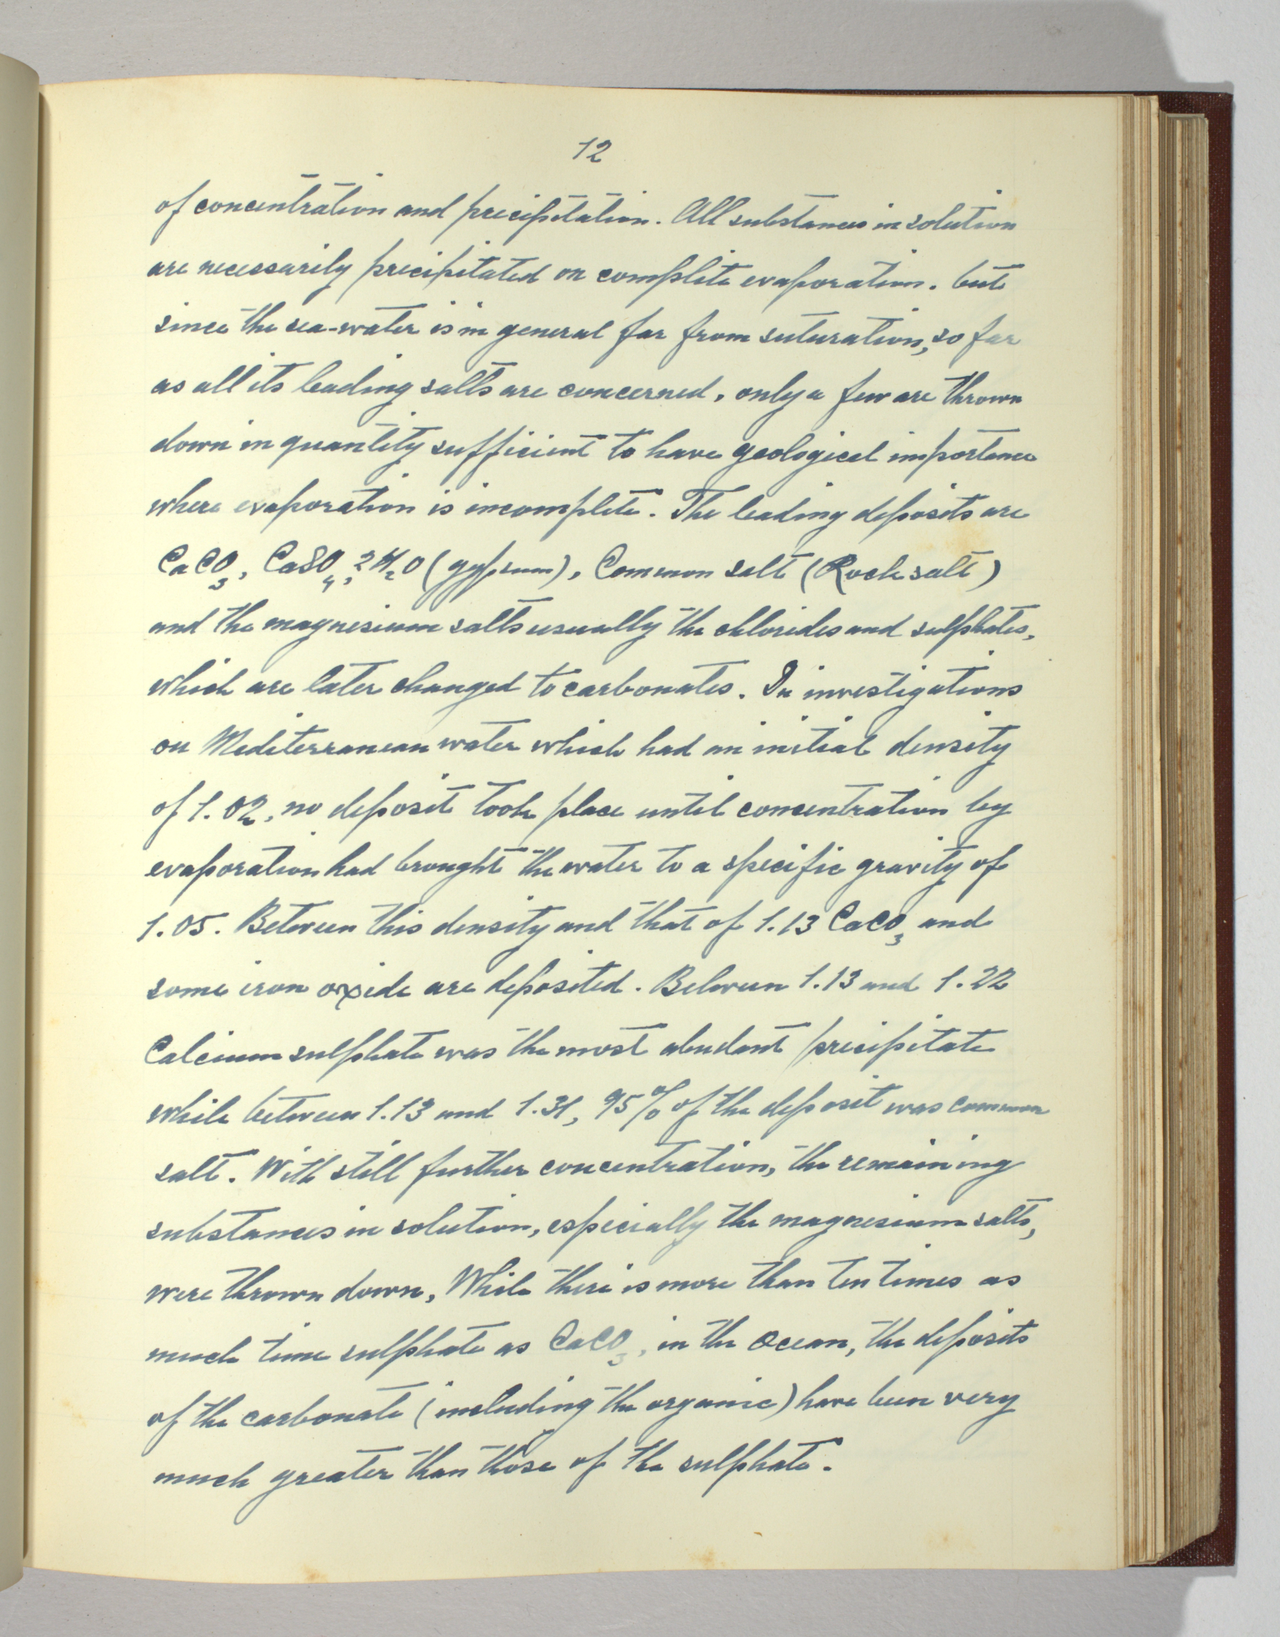 12
of concentration and precipitation. All substances in solution
are necessarily precipitated on complete evaporation. but
since the sea-water is in general far from suturation, so far
as all its leading salts are concerned, only a few are thrown
down in quantity sufficient to have geological importance
where evaporation is incomplete. The leading deposits are
CaCO₃, CaSO₄, 2H₂O (gypsum), Common salt (Rock salt)
and the magnesium salts usually the chlorides and sulphates,
which are later changed to carbonates. In investigations
on Mediterranean water which had an initial density
of 1.02, no deposit took place until concentration by
evaporation had brought the water to a specific gravity of
1.05. Between this density and that of 1.13 CaCO₃ and
some iron oxide are deposited. Between 1.13 and 1.22
Calcium sulphate was the most abudant precipitate
while between 1.13 and 1.31, 95% of the deposit was common
salt. With still further concentration, the remaining
substances in solution, especially the magnesium salts,
were thrown down, While there is more than ten times as
much time sulphate as CaCO₃, in the Ocean, the deposits
of the carbonate (including the organic) have been very
much greater than those of the sulphate.